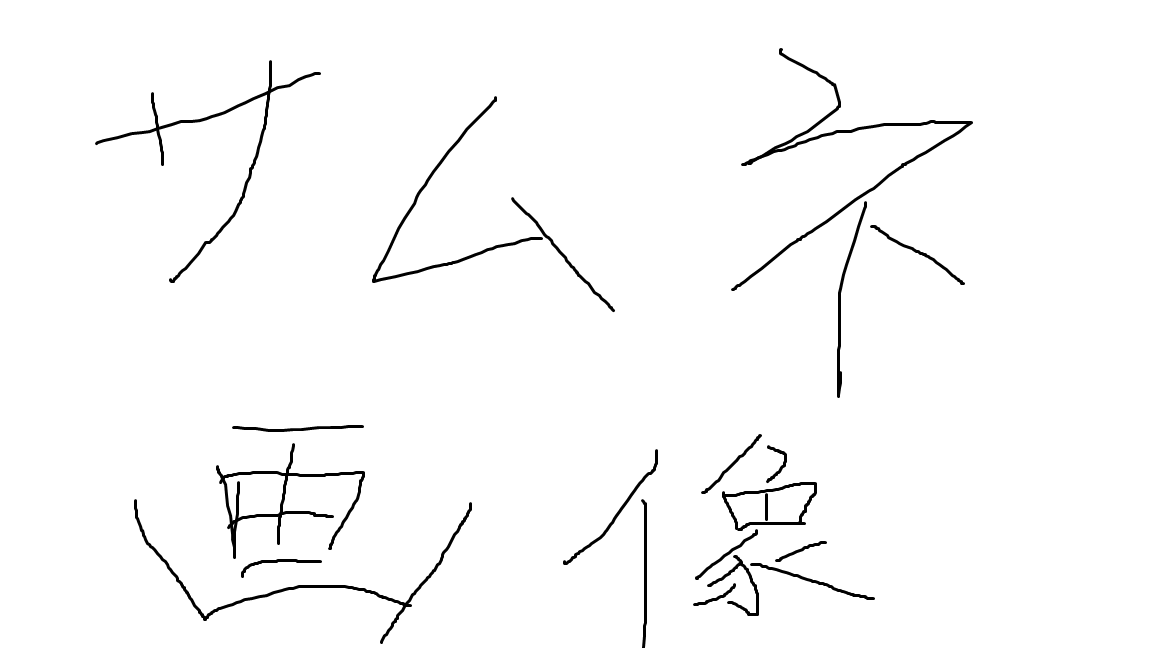 サムネ
画像